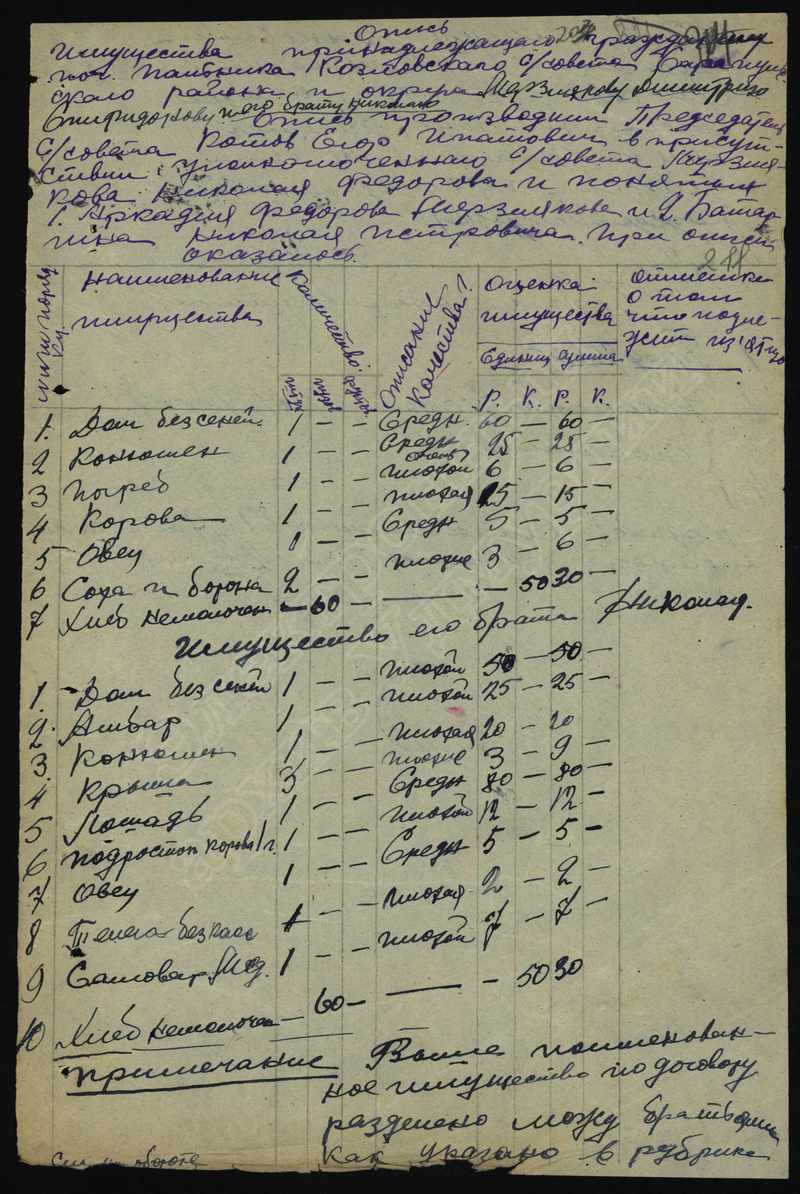 Опись
имущества принадлежащего гражданину
поч. Палтника Козловского с/совета
ского района и округа Мерзлякову Дмитрию
Спиридонову и его брату Николаю
Опись производит Председатель
с/совета Котов Егор Ипатович в присут-
ствии уполномоченнаго с/совета Мерзля-
кова Николая Федорова и понятых
1. Аркадия Федорова Мерзлякова и 2. Батар
гина Николая Петровича. При описи
оказалось.
211
Наименование имущества
Количество:
Описание качества:
Оценка имущества
Единиц Сумма
Отметка о том что подле-
жит из'ятию
Р. К. Р. К.
1. Дом без сеней 1 – – Средн. 60 – 60 –
2 Конюшен 1 – – Средн 25 – 25 –
3 Погреб 1 – – очень плохой 6 – 6 –
4 Корова 1 – – плохая 15 – 15 –
5 Овец 1 – – Средн 5 – 5 –
6 Соха и борона 2 – – плохие 3 – 6 –
7 Хлеб немолочен – 60 – — – 50 30 –
Имущество его брата Николая.
1. Дом без сеней 1 – – плохой 50 – 50 –
2. Амбар 1 – – плохой 25 – 25 –
3. Конюшен 1 – – плохая 20 – 20
4 Крыша 3 – – плохие 3 – 9 –
5 Лошадь 1 – – Средн 80 – 80 –
6 Подросток корова 1 г. 1 – – плохой 12 – 12 –
7 Овец 1 – – Средн 5 – 5 –
8 Телега без колес 1 – – плохая 2 – 2 –
9 Самовар мед. 1 – – плохой 7 – 7 –
10 Хлеб немолочен – 60 – — – 50 30
Примечание Выше поименован-
ное имущество по договору
разделено можу братьями
как указано в рубрике
См. на обороте